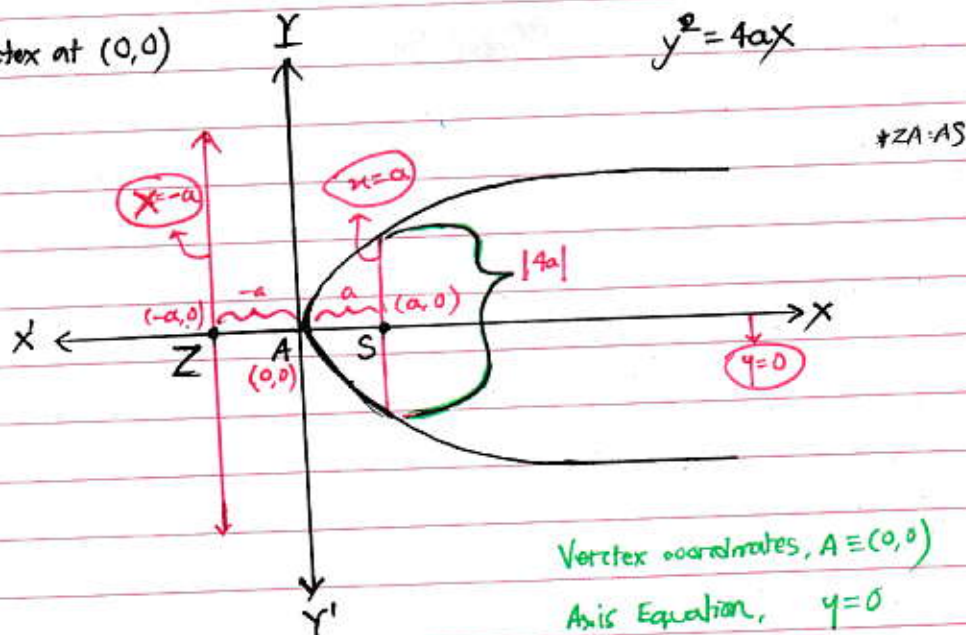 at (0,0)
Y
y² = 4ax
*ZA:AS
X=-a
x=a
|4a|
-a
a
(-a,0)
(a,0)
X'
X
Z
A
S
(0,0)
y=0
Y'
Vertex coordinates, A ≡ (0,0)
Axis Equation, y=0